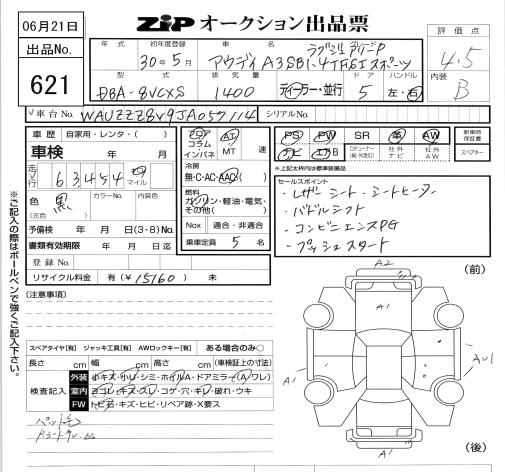 06月21日
ZiP オークション出品票
出品No.
621
年式
初年度登録
30年5月
車名
アウディ A3SB1.4TFSIスポーツ
評価点
4.5
内装
B
型式
DBA-8VCXS
排気量
1400
ディーラー・並行
ドア
5
ハンドル
左・右
車台No.
WAUZZZ8V9JA057114
シリアルNo.
車歴 自家用・レンタ・( )
車検 年 月
走行
63,454
マイル
色
黒
(元色)
カラーNo.
内装色
予備検 年 月 日(3・8)No.
書類有効期限 年 月 日迄
登録No.
リサイクル料金 有(¥15160) 未
フロア
コラム
インパネ
AT
MT
速
冷房
無・C・AC・AAC
燃料
ガソリン・軽油・電気・
その他( )
Nox 適合・非適合
乗車定員 5 名
PS PW SR 革 AW
ナビ エアB
社外ナビ
社外AW
新車時保証書
スペアキー
*上記太枠内は標準装備品
セールスポイント
・レザーシート・シートヒーター
・パドルシフト
・コンビニエンスPG
・プッシュスタート
※ご記入の際はボールペンで強くご記入下さい。
(注意事項)
スペアタイヤ[有] ジャッキ工具[有] AWロックキー[有] ある場合のみ○
長さ cm 幅 cm 高さ cm (車検証上の寸法)
検査記入
外装 小キズ・小U・シミ・ホイルA・ドアミラー(A ワレ)
室内 ヨゴレ・キズ・スレ・コゲ・穴・キレ・破れ・ウキ
FW トビ石・キズ・ヒビ・リペア跡・X要ス
ペット毛
(前)
A2
A1
A1
AU1
A1
(後)